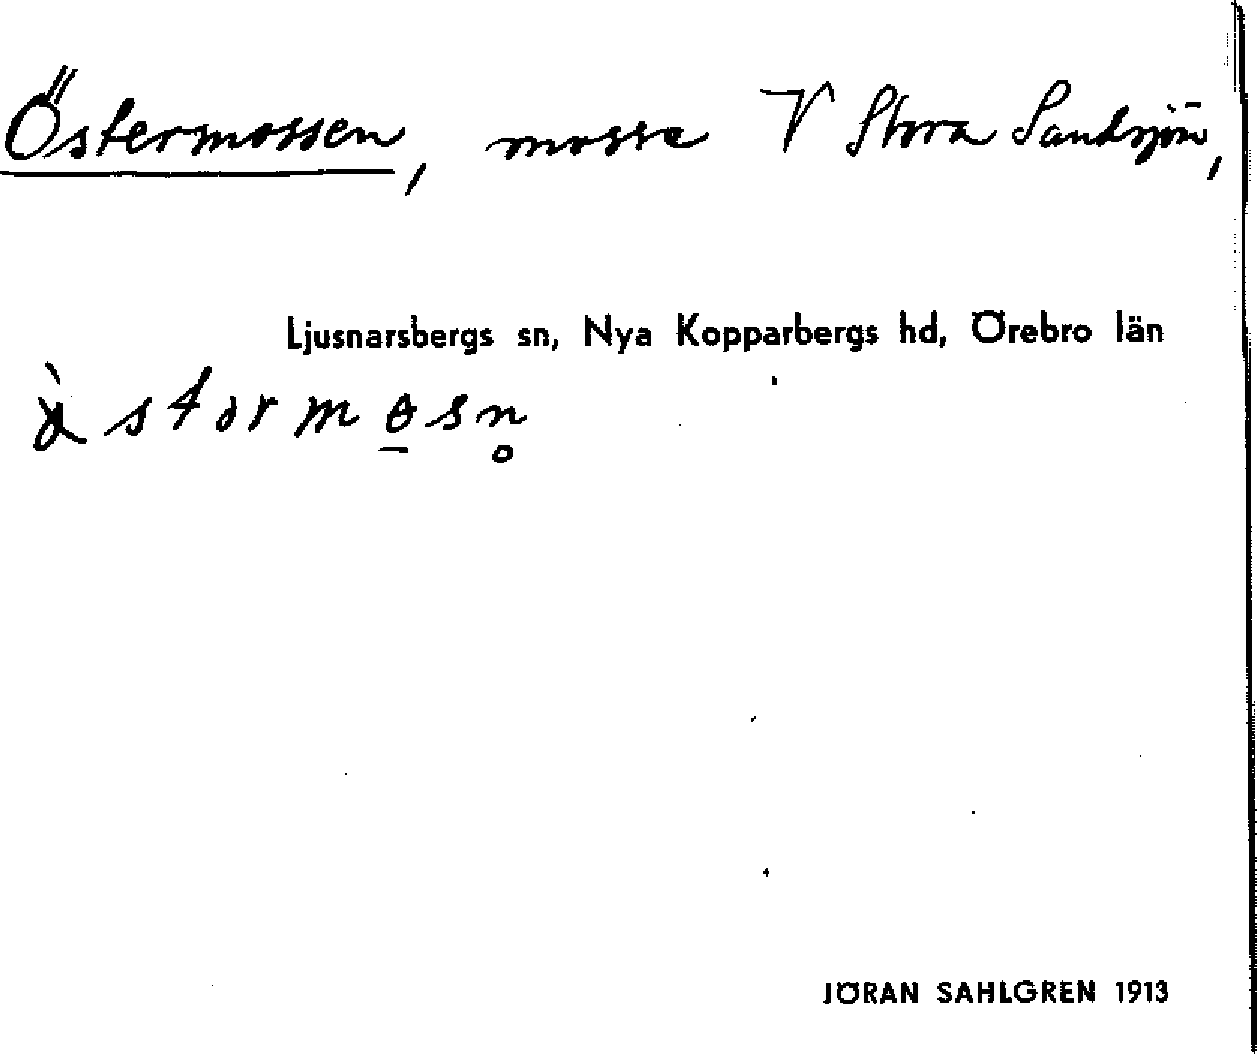 Östermossen, mosse V Stora Sandsjön,
Ljusnarsbergs sn, Nya Kopparbergs hd, Örebro län
JÖRAN SAHLGREN 1913